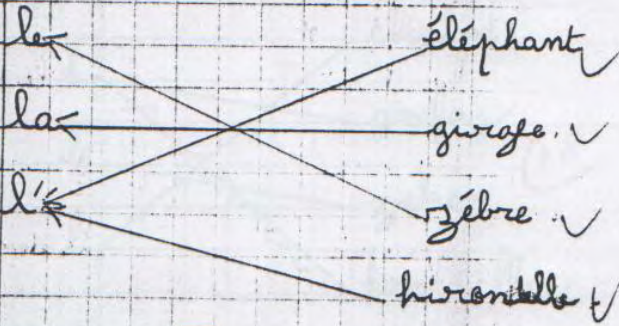 le éléphant
la girafe.
l' zébre
hirondelle